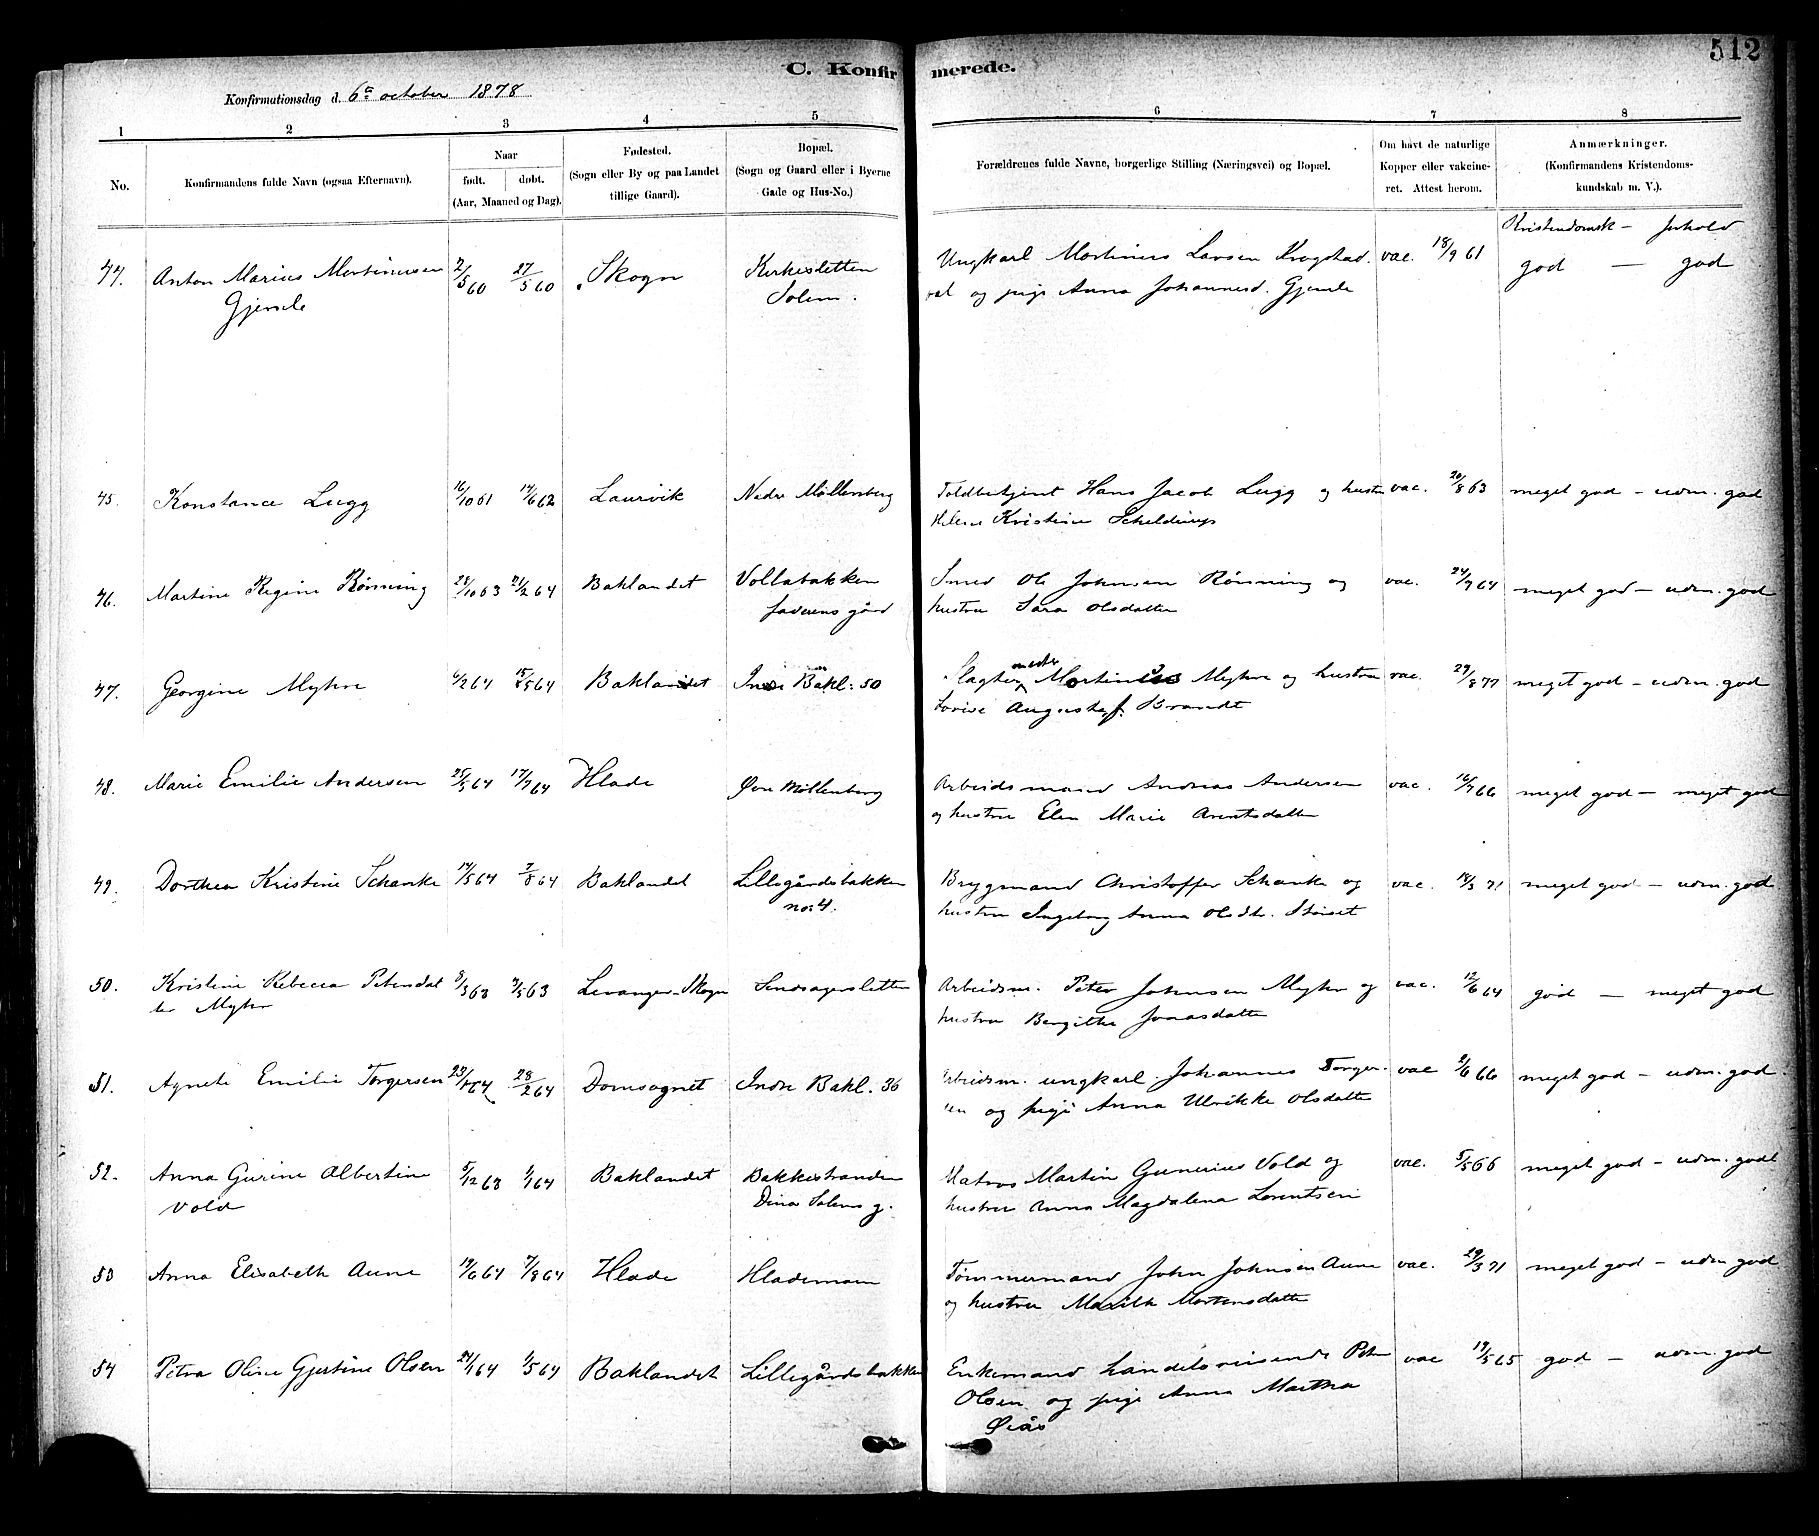 512
C. Konfirmerede.
Konfirmationsdag d. 6te october 1878
1 2 3 4 5 6 7 8
No.
Konfirmandens fulde Navn (ogsaa Efternavn).
Naar
født. døbt.
(Aar, Maaned og Dag).
Fødested.
(Sogn eller By og paa Landet
tillige Gaard).
Bopæl.
(Sogn og Gaard eller i Byerne
Gade og Hus-No.)
Forældrenes fulde Navne, borgerlige Stilling (Næringsvei) og Bopæl.
Om havt de naturlige
Kopper eller vakcine-
ret. Attest herom.
Anmærkninger.
(Konfirmandens Kristendoms-
kundskab m. V.).
Kristendomsk — forhold
44. Anton Marius Mortinusen 2/5 60 27/5 60 Skogn Kirkesletten Ungkarl Mortinus Larsen Krogstad- vac. 18/9 61 god — god
Gjemle Solem. og pige Anna Johannesd. Gjemle
45. Konstance Lugg 16/10 61 14/6 62 Laurvik Nedre Møllenberg Toldbetjent Hans Jacob Lugg og hustru vac. 20/8 63 meget god — udm. god
Kristine Scheldrup
46. Martine Regine Rønning 28/10 63 21/2 64 Baklandet Vollabakken Smed Ole Johnsen Rønning og vac. 24/9 64 meget god — udm. god
gård hustru Sara Olsdatter
47. Georgine Myhre 6/2 64 15/5 64 Baklandet Indre Bakl: 50 Slagtermester Mortinus Myhre og hustru vac. 29/8 77 meget god — udm. god
Lovise Augusta f. Brandt
48. Marie Emilie Andersen 25/5 64 17/7 64 Hlade Øvre Møllenberg Arbeidsmand Andreas Andersen vac. 16/7 66 meget god — meget god
og hustru Elen Marie Arentsdatter
49. Dorthea Kristine Schanke 14/5 64 7/8 64 Baklandet Lillegårdsbakken Brygmand Christoffer Schanke og vac. 18/3 71 meget god — udm. god
no: 4. hustru Ingeborg Anna Olsdtr. Støiset
50. Kristine Rebecca Petersdat 8/3 63 Levanger-Skogn Sendsagersletten Arbeidsm. Peter Johnsen Myhr og vac. 12/6 64 god — meget god
ter Myhr hustru Bergitte Jonasdatter
51. Agnete Emilie Torgersen 28/2 64 Domsognet Indre Bakl. 36 Arbeidsm. ungkarl Johannes Torger- vac 2/6 66 meget god — udm. god.
sen og pige Anna Ulrikke Olsdatter
52. Anna Gurine Albertine 5/12 63 1/1 64 Baklandet Bakkestranden Matros Martin Gunerius Vold og vac. 5/5 66 meget god — udm. god
Vold Dina Solems g. hustru Anna Magdalena Lorentsen
53 Anna Elisabeth Aune 19/6 64 7/8 64 Hlade Hlademoen Tømmermand John Johnsen Aune vac. 29/3 71 meget god — udm. god
og hustru Marith Mortensdatter
54 Petra Oline Gjertine Olsen 24/1 64 1/5 64 Baklandet Lillegårdsbakken Enkemand handelsreisende Peter vac 19/5 65 god — udm. god
Olsen og pige Anna Martha
Øiås